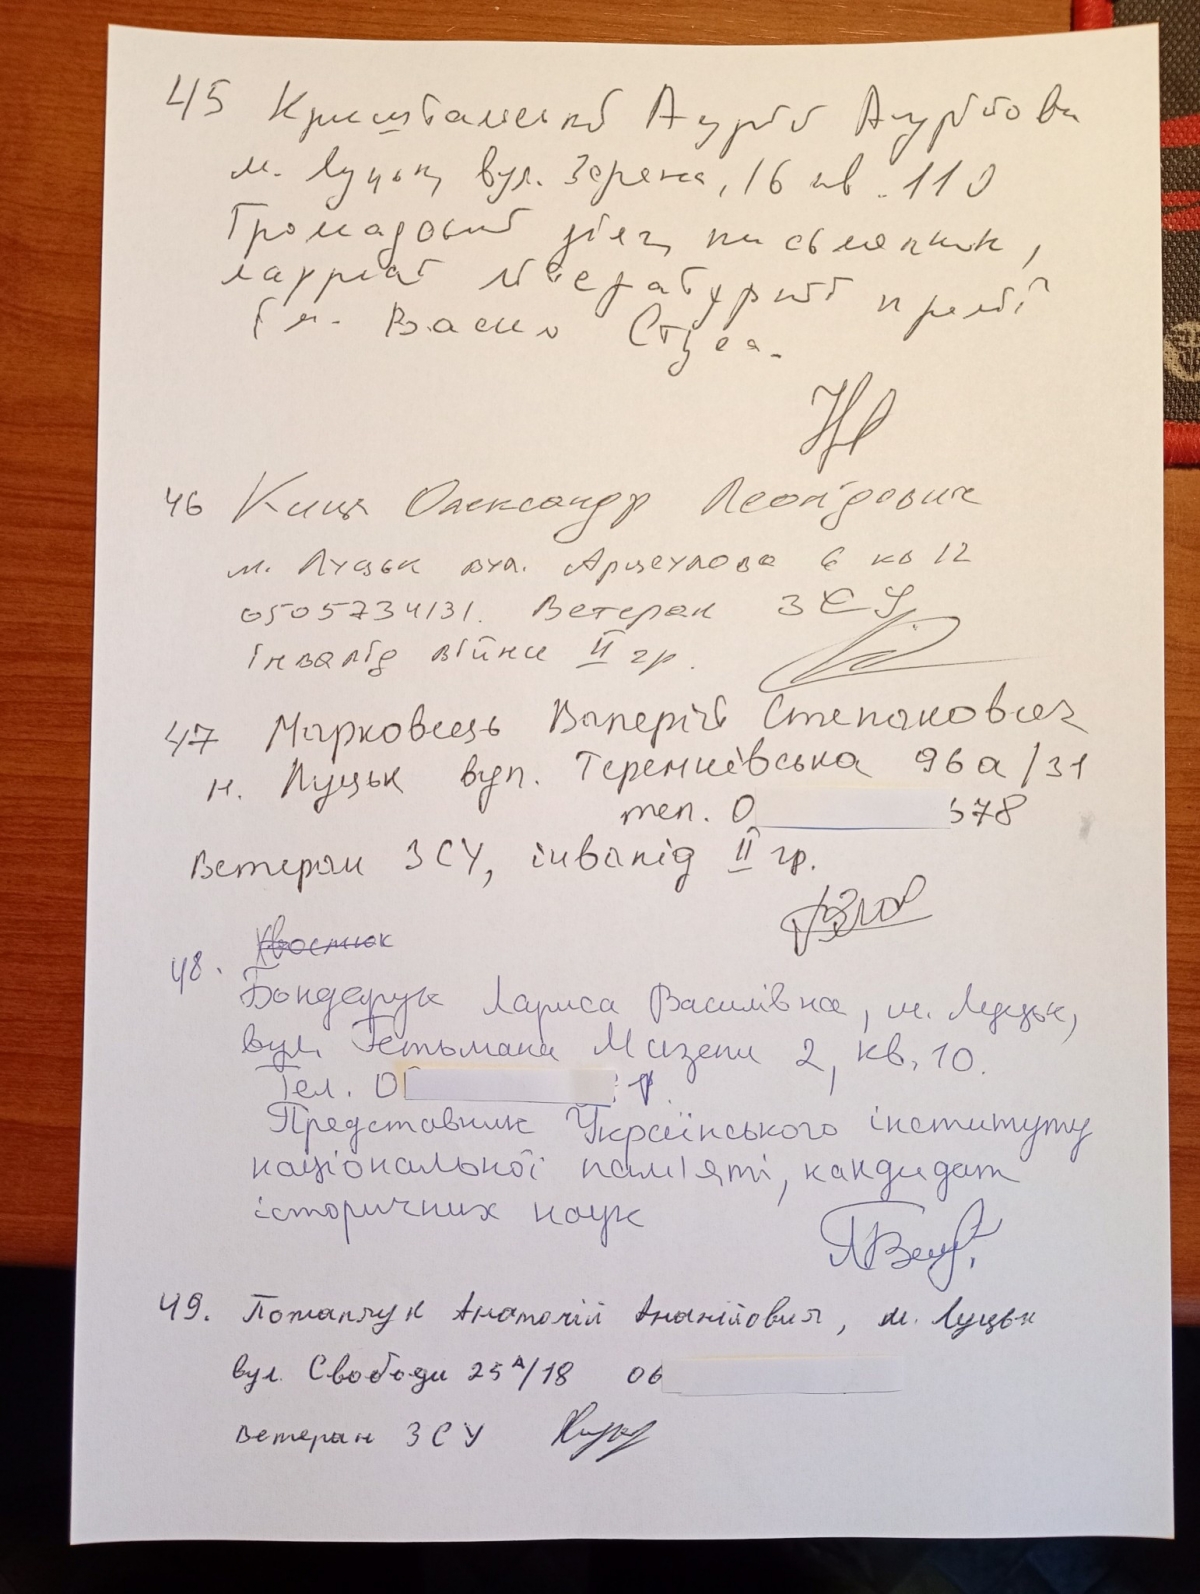 45 Криштальський Андрій Андрійови
м. Луцьк, вул. Зоряна, 16 кв. 110
Громадський діяч, письменник,
лауреат літературної премії
ім. Василя Стуса.
46 Киць Олександр Леонідович
м. Луцьк вул. Арцеулова 6 кв 12
0505734131. Ветеран ЗСУ,
інвалід війни II гр.
47 Марковець Валерій Степанович
м. Луцьк вул. Теремнівська 96а/31
тел. 0 578
Ветеран ЗСУ, інвалід II гр.
Хвостюк
48. Бондарук Лариса Василівна, м. Луцьк,
вул. Гетьмана Мазепи 2, кв. 10.
Тел. 0
Представник Українського інституту
національної пам'яті, кандидат
історичних наук
49. Потапчук Анатолій Ананійович, м. Луцьк
вул. Свободи 25А/18 06
ветеран ЗСУ